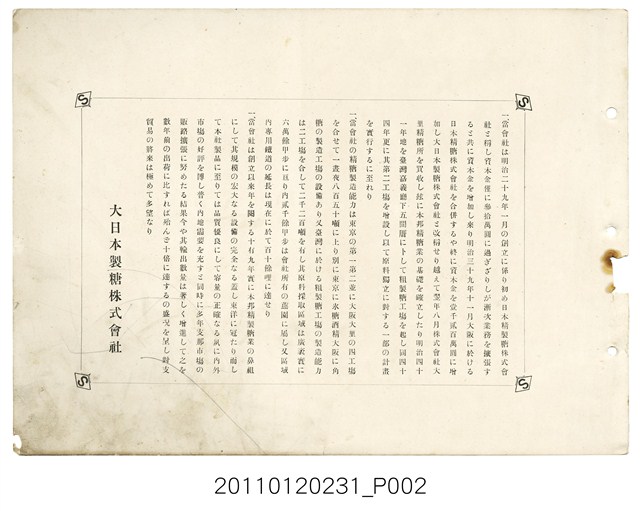 一當會社は明治二十九年一月の創立に係り初め日本精製糖株式會
社と稱し資本金僅に參拾萬圓に過ぎざりしが漸次業務を擴張す
ると共に資本金を增加し來り明治三十九年十一月大阪に於ける
日本精糖株式會社を合併するや終に資本金を壹千貳百萬圓に增
加し大日本製糖株式會社と改稱せり越えて翌年八月株式會社大
里精糖所を買收し玆に本邦精糖業の基礎を確立したり明治四十
一年地を臺灣嘉義廳下五間厝に卜して粗製糖工場を起し同四十
四年更に其第二工場を增設し以て原料獨立に對する一部の計畫
を實行するに至れり
一當會社の精糖製造能力は東京の第一第二並に大阪大里の四工場
を合せて一晝夜八百五十噸に上り別に東京に氷糖酒精大阪に角
糖の製造工場の設備あり又臺灣に於ける粗製糖工場の製造能力
は二工場を合して二千二百噸を有し其原料採取區域は廣袤實に
六萬餘甲步に亘り內貳千餘甲步は會社所有の蔗園に屬し又區域
內專用鐵道の延長は現在に於て百十餘哩に達せり
一當會社は創立以來年を閱する十有九年實に本邦精製糖業の鼻祖
にして其規模の宏大なる設備の完全なる蓋し東洋に冠たり而し
て本社製品に至りては品質優良にして容量の正確なる夙に內外
市場の好評を博し普く內地需要を充すと同時に多年支那市場の
販路擴張に努めたる結果今や其輸出數量は著しく增進して之を
數年前の出荷に比すれば殆んど十倍に達するの盛況を呈し對支
貿易の將來は極めて多望なり
大日本製糖株式會社
20110120231_P002